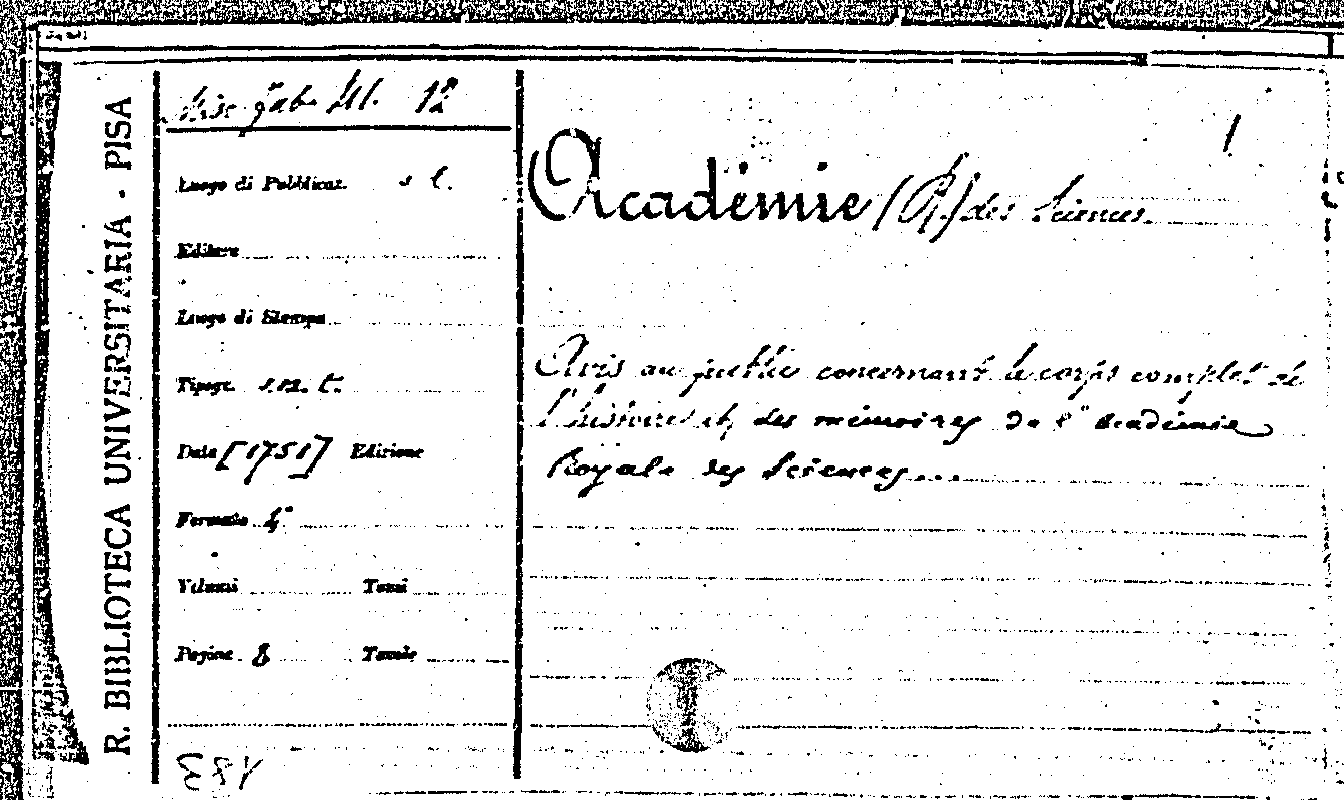 R. BIBLIOTECA UNIVERSITARIA - PISA
Misc. Gab. 12
Luogo di Pubblicaz. s. l.
Editore
Luogo di Stampa
Tipogr. s.n.t.
Data [1751] Edizione
Formato 4°
Volumi Tomi
Pagine 8 Tavole
183
1
Académie (R.) des Sciences.
Avis au public concernant le corps complet de
l'histoire et des mémoires de l'Académie
Royale des Sciences...